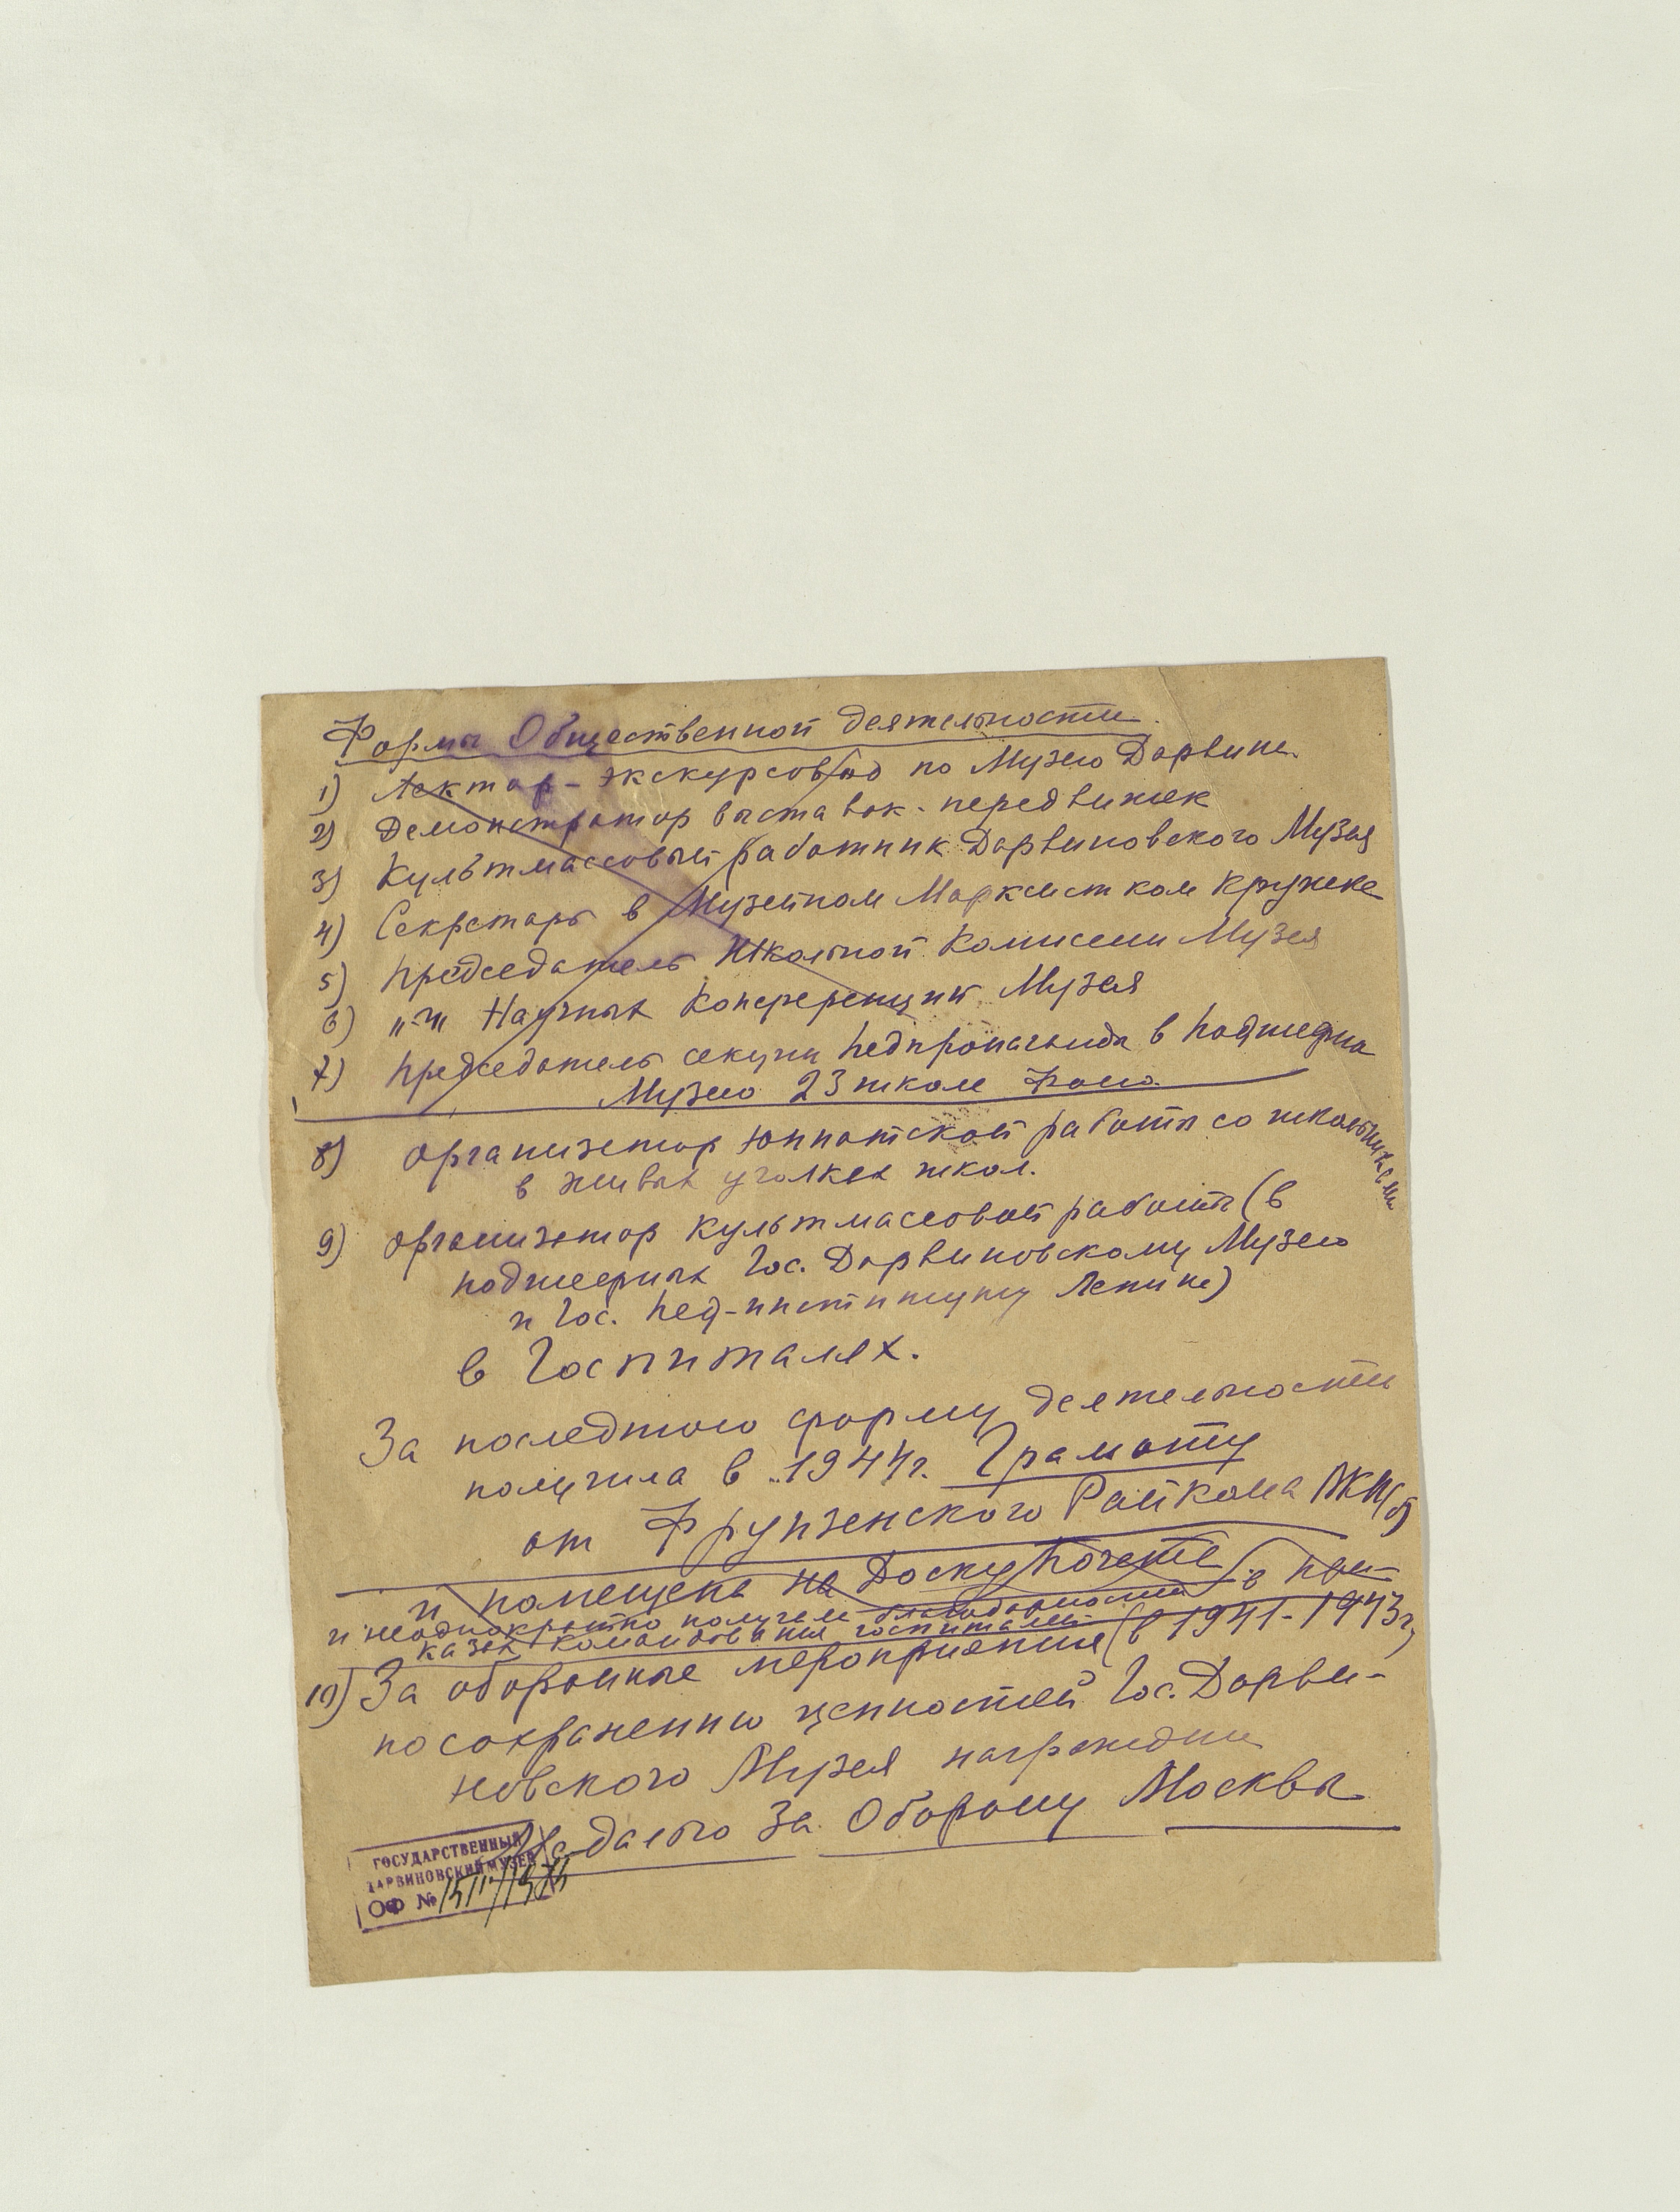 Формы Общественной деятельности.
1) Лектор-экскурсовод по Музею Дарвина
2) Демонстратор выставок-передвижек
3) Культмассовый работник Дарвиновского Музея
4) Секретарь в Музейном Марксистком Кружке
5) Председатель Школьной Комиссии Музея
6) "-" Научных Конференций Музея
7) Председатель секции Педпропаганды в Подшефной
Музею 23 школе
8) Организатор Юннатской работы со школьниками
в живых уголках школ.
9) Организатор культмассовой работы (в
подшефных Гос. Дарвиновскому Музею
и Гос. Пед-институту Ленина)
в Госпиталях.
За последнюю форму деятельности
получила в 1944г. Грамоту
от Фрунзенского Райкома ВКП(б)
и помещена на Доску Почета
и неоднократно получала благодарности в при-
казах командования госпиталей
10) За оборонные мероприятия (в 1941-1943г)
по сохранению ценностей Гос. Дарви-
новского Музея награждена
Медалью За Оборону Москвы
ГОСУДАРСТВЕННЫЙ
ДАРВИНОВСКИЙ МУЗЕЙ
ОФ №